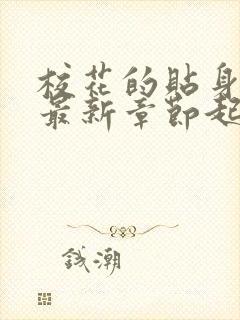 校花的贴身
最新章節起
錢潮